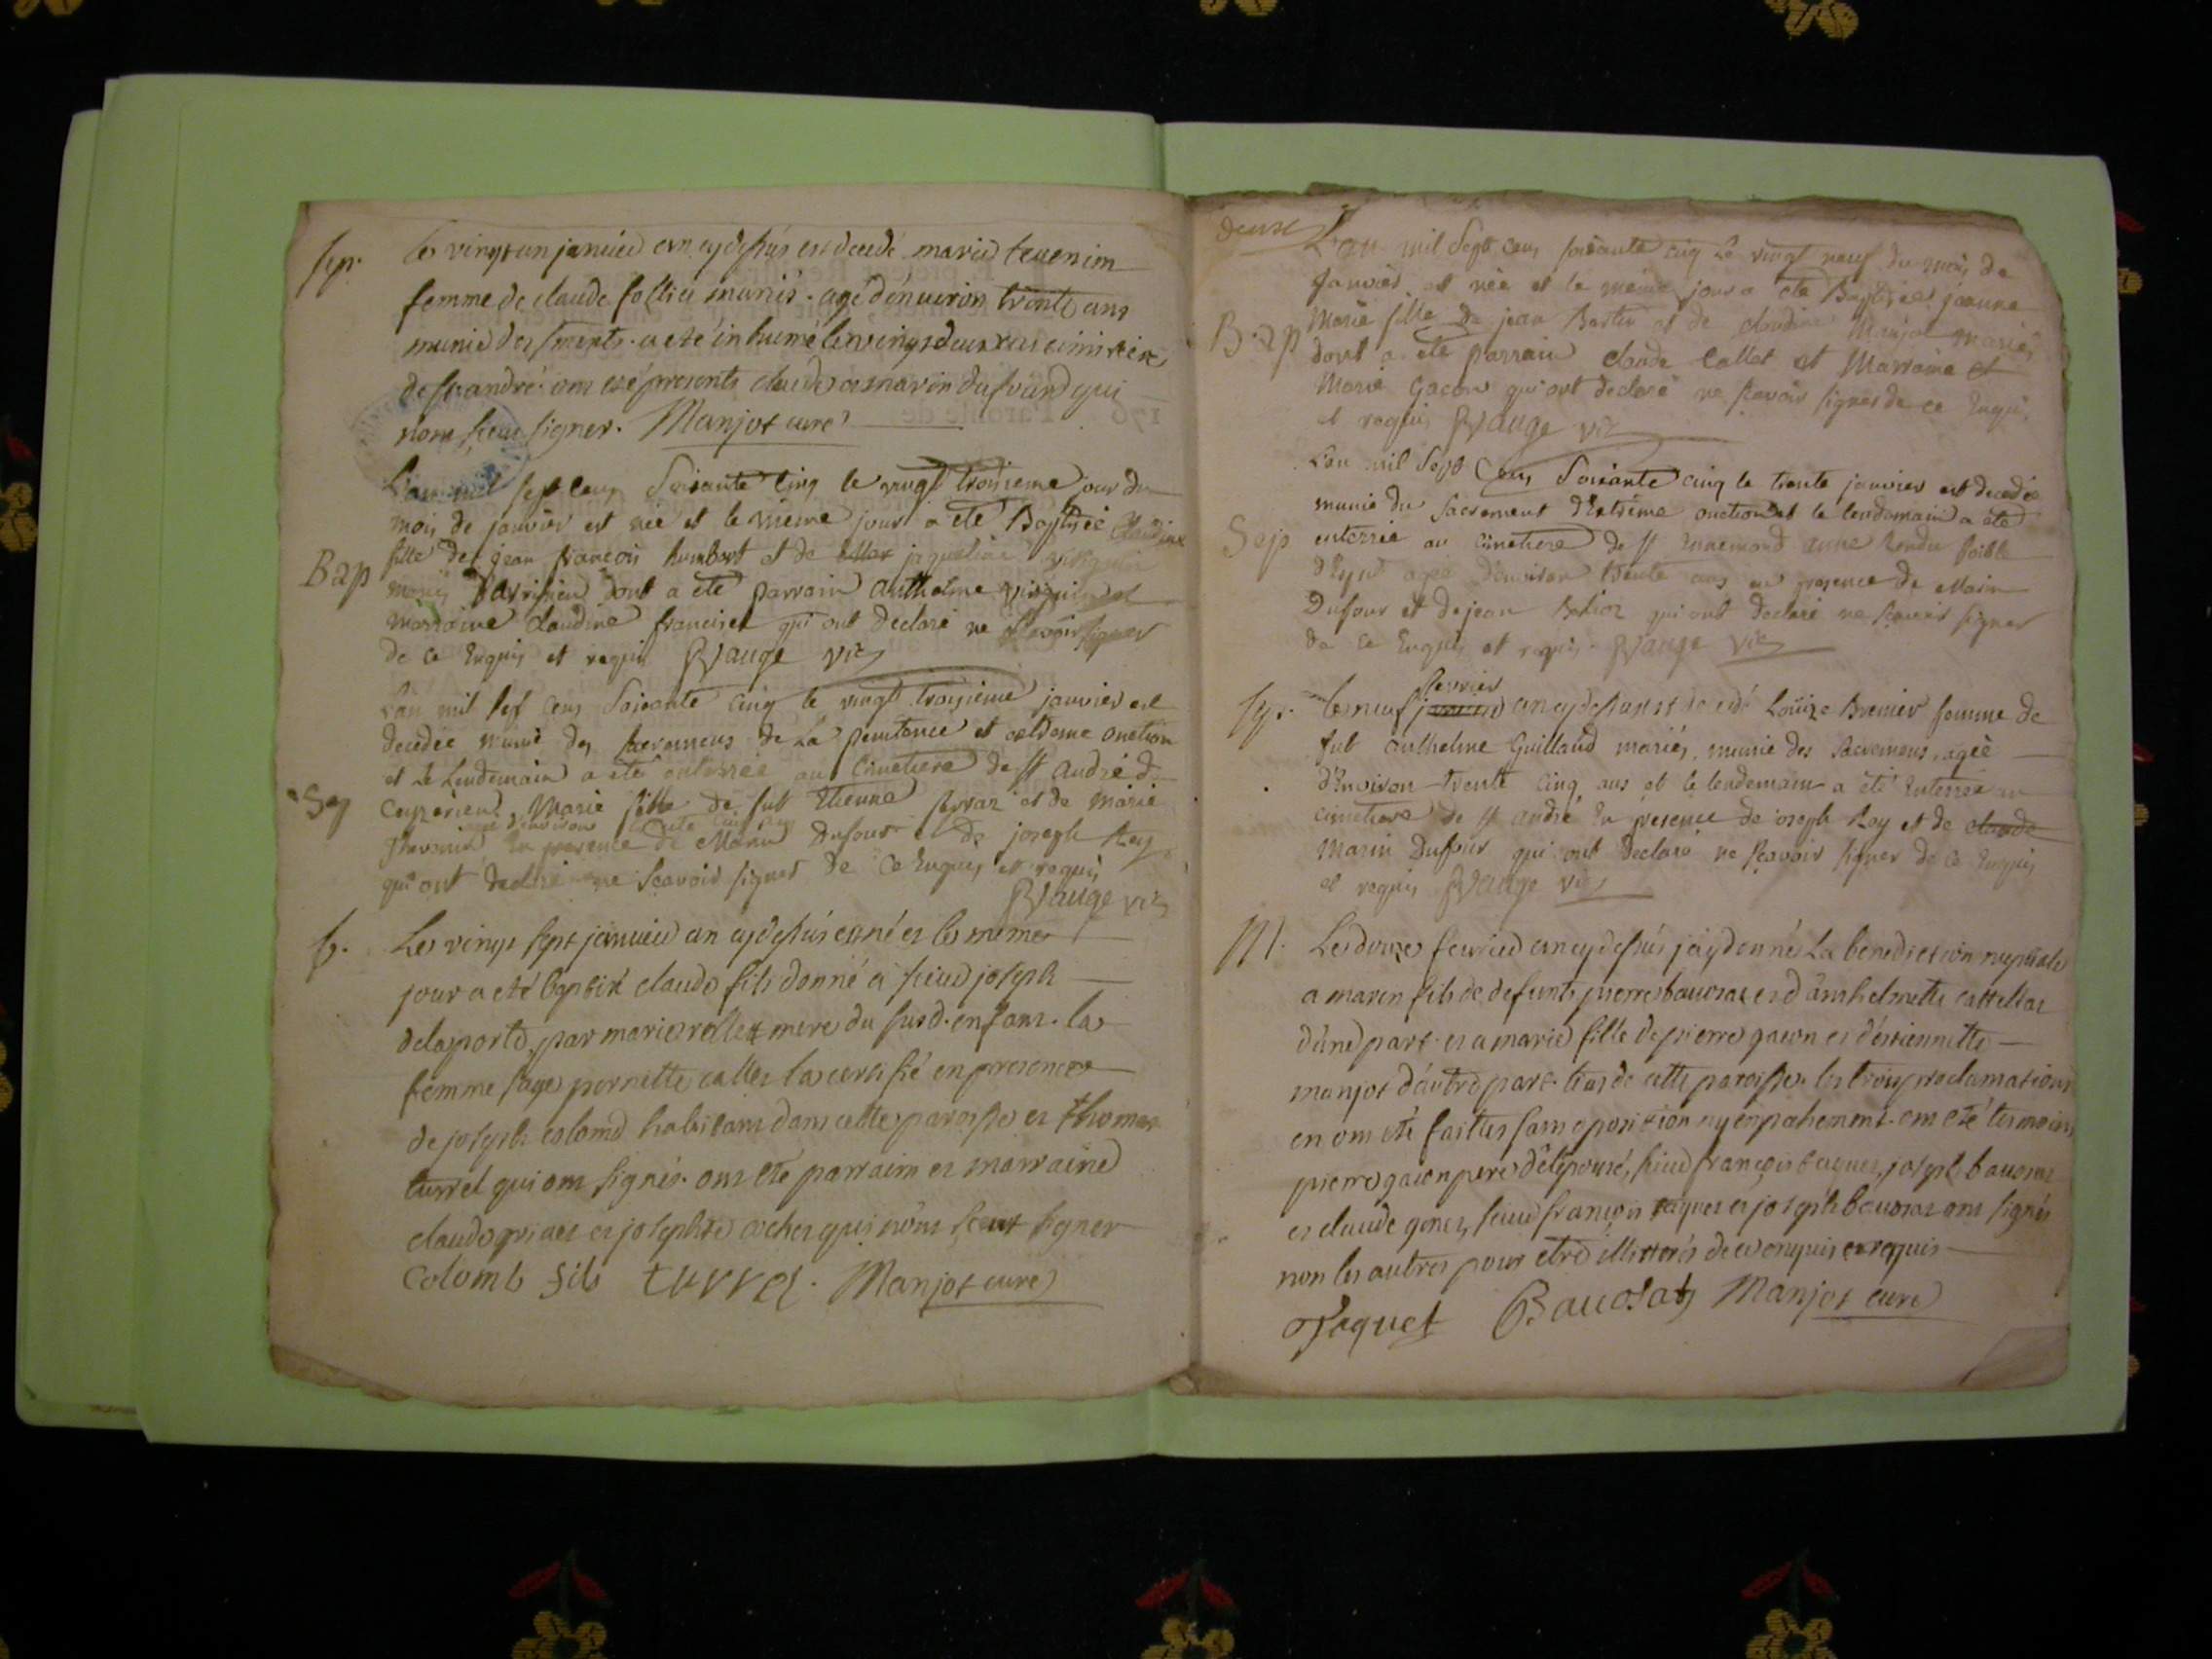 Sep.
le vingt un janvier an cy dessus est decedé marie tevenin
femme de claude follie mariés. agé d'enuiron trente ans
munie des sments. a eté inhumé le vingt deux au cimitiere
de st andré ont eté presents claude marin dufour qui
nont sceu signer. Manjot curé
L'an mil sept cens Soixante Cinq le vingt troisieme jour du
mois de janvier est née et le même jour a eté Baptisée Claudine
Bap
fille de jean françois humbert et de jaqueline
mariés dont a eté parrain Anthelme et
marraine Claudine francises qui ont declaré ne sçavoir signer
de ce Enquis et requis Rvauge vic
L'an mil sept cens Soixante Cinq le vingt troisieme janvier est
decedée munie des sacremens de La penitence et extreme onction
et le Lendemain a eté enterrée au Cimetiere de st andré de
Sep
Ceyzerieu, Marie fille de fut Etienne et de Marie
En presence de Marin Dufour et de joseph Rey
qui ont declaré ne Scavoir signer de ce Enquis et requis
Rvauge vic
b.
Le vingt sept janvier an cy dessus est né et le même
jour a eté baptisé claude fils donné a sieur joseph
delaporte, par marie rollet mere du susd. enfant. la
femme sage pernette callet la certifié en presence
de joseph colomb habitant dans cette paroisse et thomas
turrel qui ont signés. ont eté parrain et marraine
claude et josephte cochet qui n'ont sceut signer
Colomb fils turrel. Manjot curé
deux
L'an mil Sept cens soixante cinq Le vingt neuf du mois de
janvier est née et le même jour a eté Baptisée jeanne
Bap
Marie fille de jean et de claudine Manjot mariés
dont a eté parrain claude Callet et Marraine et
Marie Gacon qui ont declaré ne sçavoir signer de ce Enquis
et requis Rvauge vic
L'an mil Sept Cens Soixante cinq le trente janvier est decedée
munie du Sacrement d'Extrême onction et le lendemain a eté
Sep
enterrée au cimetiere de st Ennemond anne
agée d'environ trente ans en presence de Marin
Dufour et de jean qui ont declaré ne sçavoir signer
de ce Enquis et requis. Rvauge vic
fevrier
Sep.
le neuf janvier an cy dessus est decedé Loüize Brenier femme de
fut anthelme Guillaud mariés, munie des sacremens, agée
d'Environ trente Cinq ans et le lendemain a eté Enterrée au
cimetiere de st andré En presence de joseph Rey et de claude
Marin Dufour qui ont declaré ne sçavoir signer de ce Enquis
et requis Rvauge vic
M.
Le douze fevrier an cy dessus j'ay donné La benediction nuptiale
a marin fils de defunts pierre baucraz et d'anthelmette
d'une part. et a marie fille de pierre gacon et d'estiennette
manjot d'autre part. tous de cette paroisse. les trois proclamations
en ont eté faittes sans oposition ny enpachement. ont eté temoins
pierre gacon pere de l'epouse, sieur françois paquet, joseph baucraz
et claude genet, sieur françois paquet et joseph baucraz ont signés
non les autres pour etre illiterés de ce enquis et requis
Paquet Baucrat Manjot curé